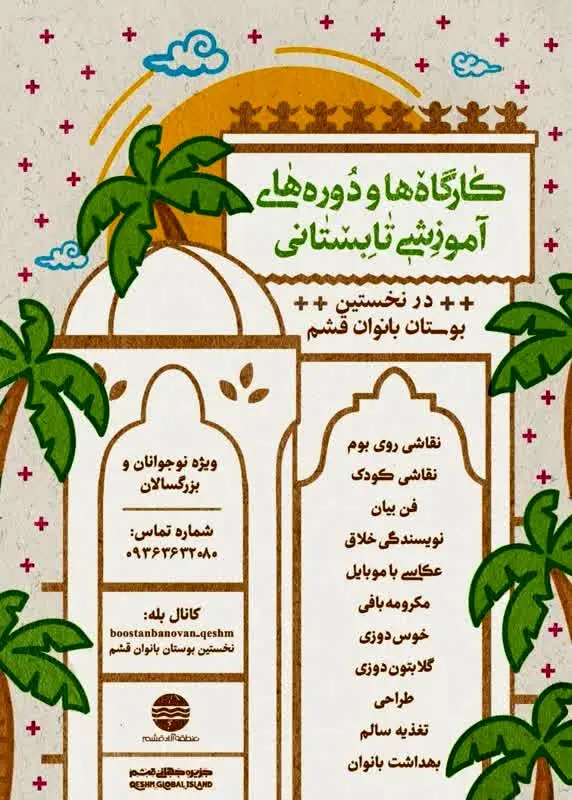 کارگاه‌ها و دوره‌های
آموزشی تابستانی
++ در نخستین ++
بوستان بانوان قشم
نقاشی روی بوم
نقاشی کودک
فن بیان
نویسندگی خلاق
عکاسی با موبایل
مکرومه بافی
خوس دوزی
گلابتون دوزی
طراحی
تغذیه سالم
بهداشت بانوان
ویژه نوجوانان و
بزرگسالان
شماره تماس:
۰۹۳۶۳۶۳۲۰۸۰
کانال بله:
boostanbanovan_qeshm
نخستین بوستان بانوان قشم
منطقه آزاد قشم
جزیره جهانی قشم
QESHM GLOBAL ISLAND